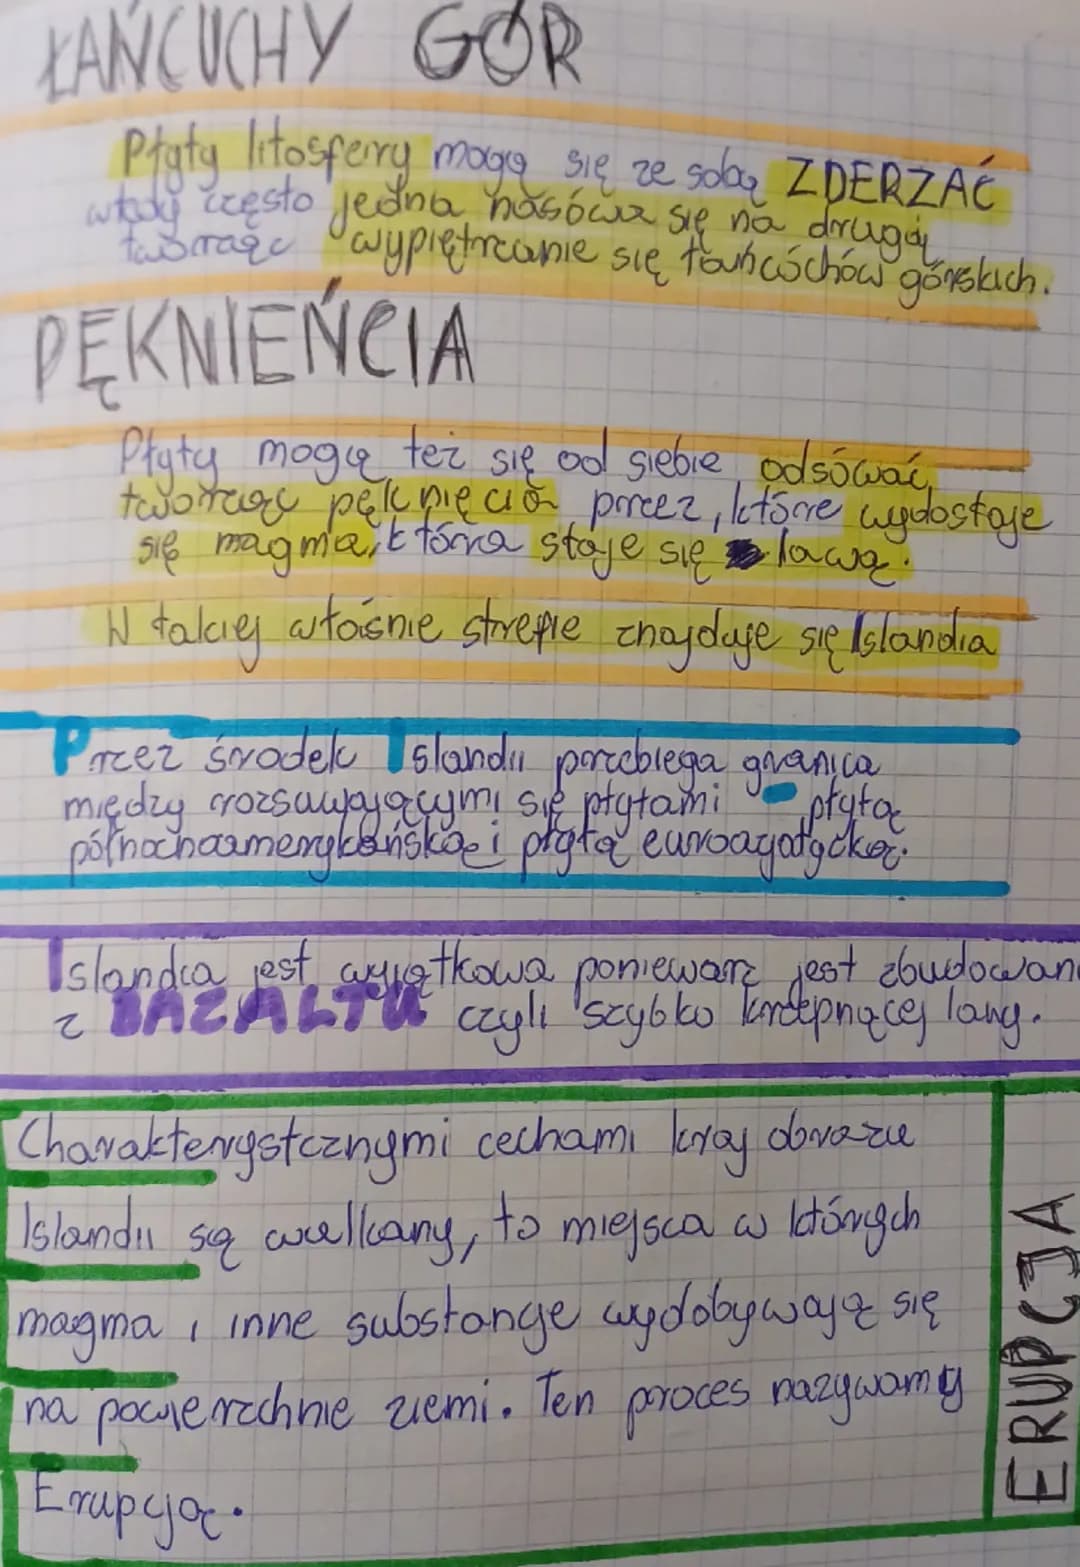 ŁAŃCUCHY GÓR
Płyty litosfery mogą się ze sobą ZDERZAĆ
wtedy często jedna nasówa się na drugą
tworząc wypiętrzanie się łańcóchów górskich.
PĘKNIEŃCIA
Płyty mogą też się od siebie odsówać,
tworząc pęknięcia przez, które wydostaje
się magma, która staje się lawą.
W takiej właśnie strefie znajduje się Islandia
Przez środek Islandii przebiega granica
między rozsuwającymi się płytami - płytą
północnoamerykańską i płytą euroazjatycką.
Islandia jest wyjątkowa ponieważ jest zbudowan
z BAZALTU czyli szybko krzepnącej lawy.
Charakterystcznymi cechami kraj obrazu
Islandii są wulkany, to miejsca w których
magma i inne substancje wydobywają się
na powierzchnie ziemi. Ten proces nazywamy
Erupcją.
ERUPCJA